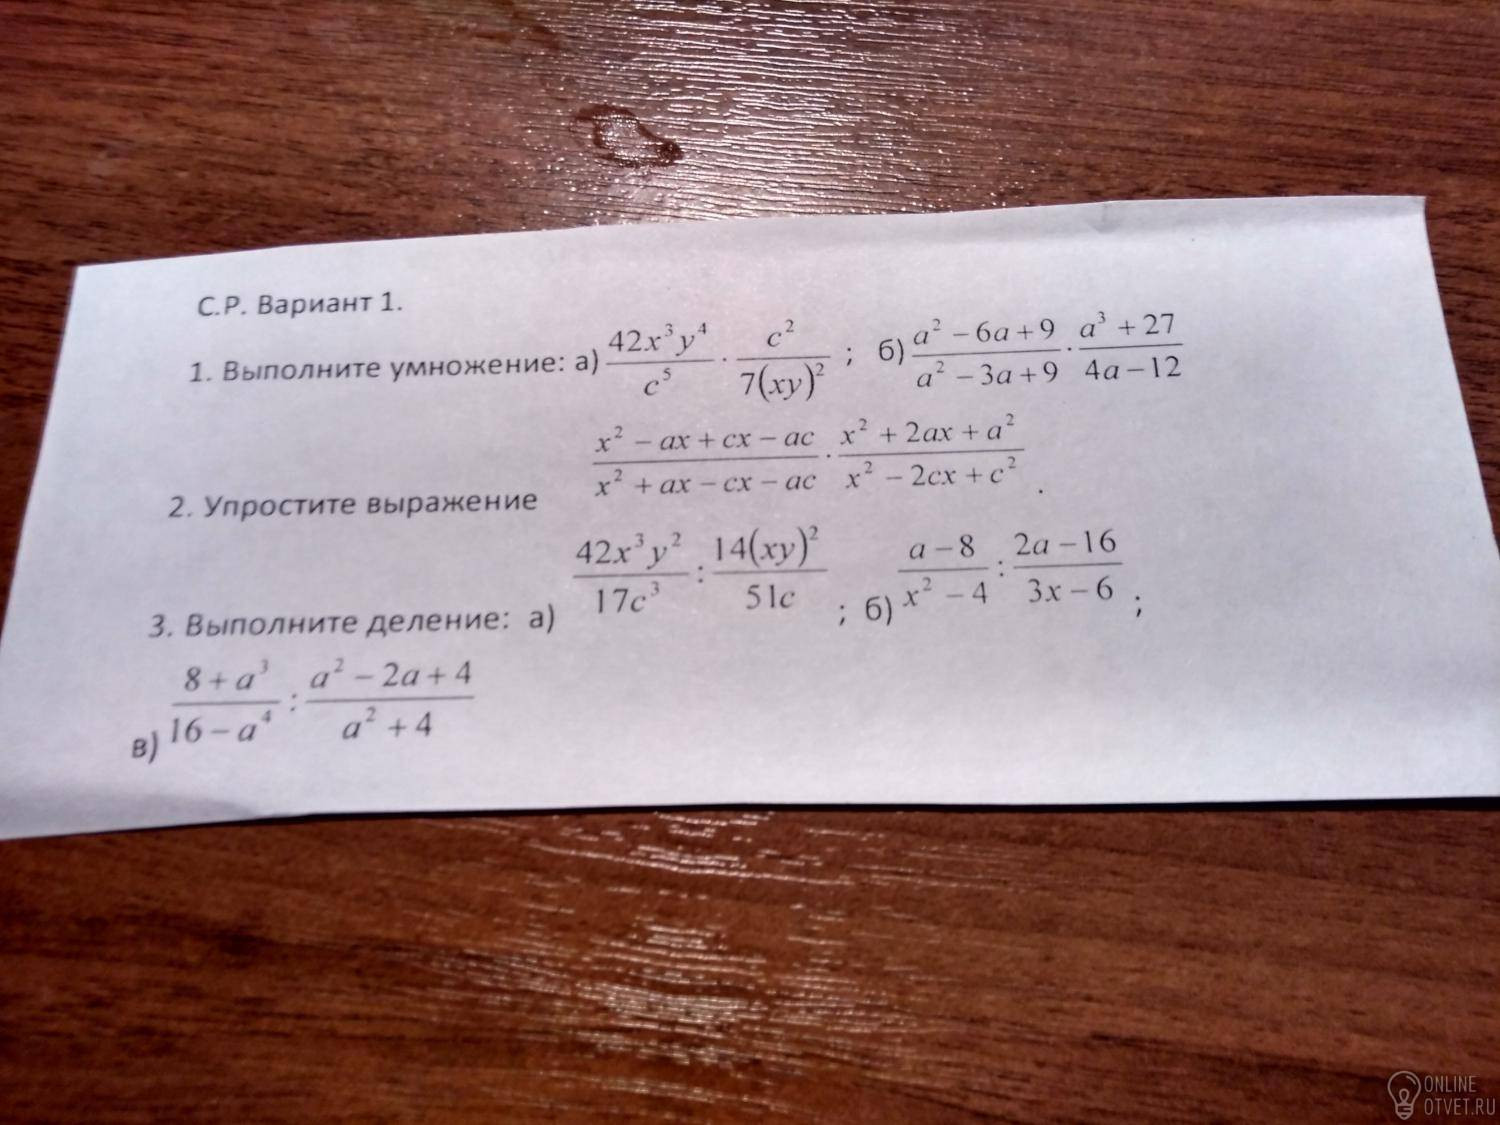 С.Р. Вариант 1.
1. Выполните умножение: а) \frac{42x^3y^4}{c^5} \cdot \frac{c^2}{7(xy)^2} ; б) \frac{a^2-6a+9}{a^2-3a+9} \cdot \frac{a^3+27}{4a-12}
2. Упростите выражение \frac{x^2-ax+cx-ac}{x^2+ax-cx-ac} \cdot \frac{x^2+2ax+a^2}{x^2-2cx+c^2} .
3. Выполните деление: а) \frac{42x^3y^2}{17c^3} : \frac{14(xy)^2}{51c} ; б) \frac{a-8}{x^2-4} : \frac{2a-16}{3x-6} ;
в) \frac{8+a^3}{16-a^4} : \frac{a^2-2a+4}{a^2+4}
ONLINE
OTVET.RU